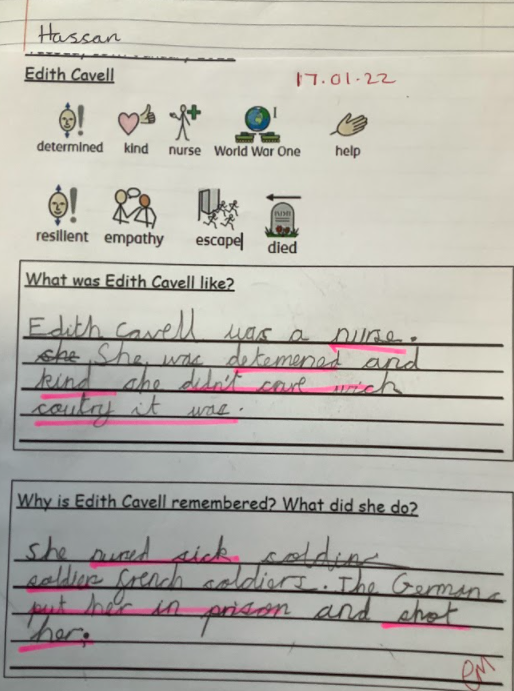 Hassan
Edith Cavell 17.01.22
determined kind nurse World War One help
resilient empathy escape died
What was Edith Cavell like?
Edith Cavell was a nurse.
She was detemened and
kind she didn't care wich
coutry it was.
Why is Edith Cavell remembered? What did she do?
She nursed sick
soldier french soldiers. The Germans
put her in prison and shot
her.